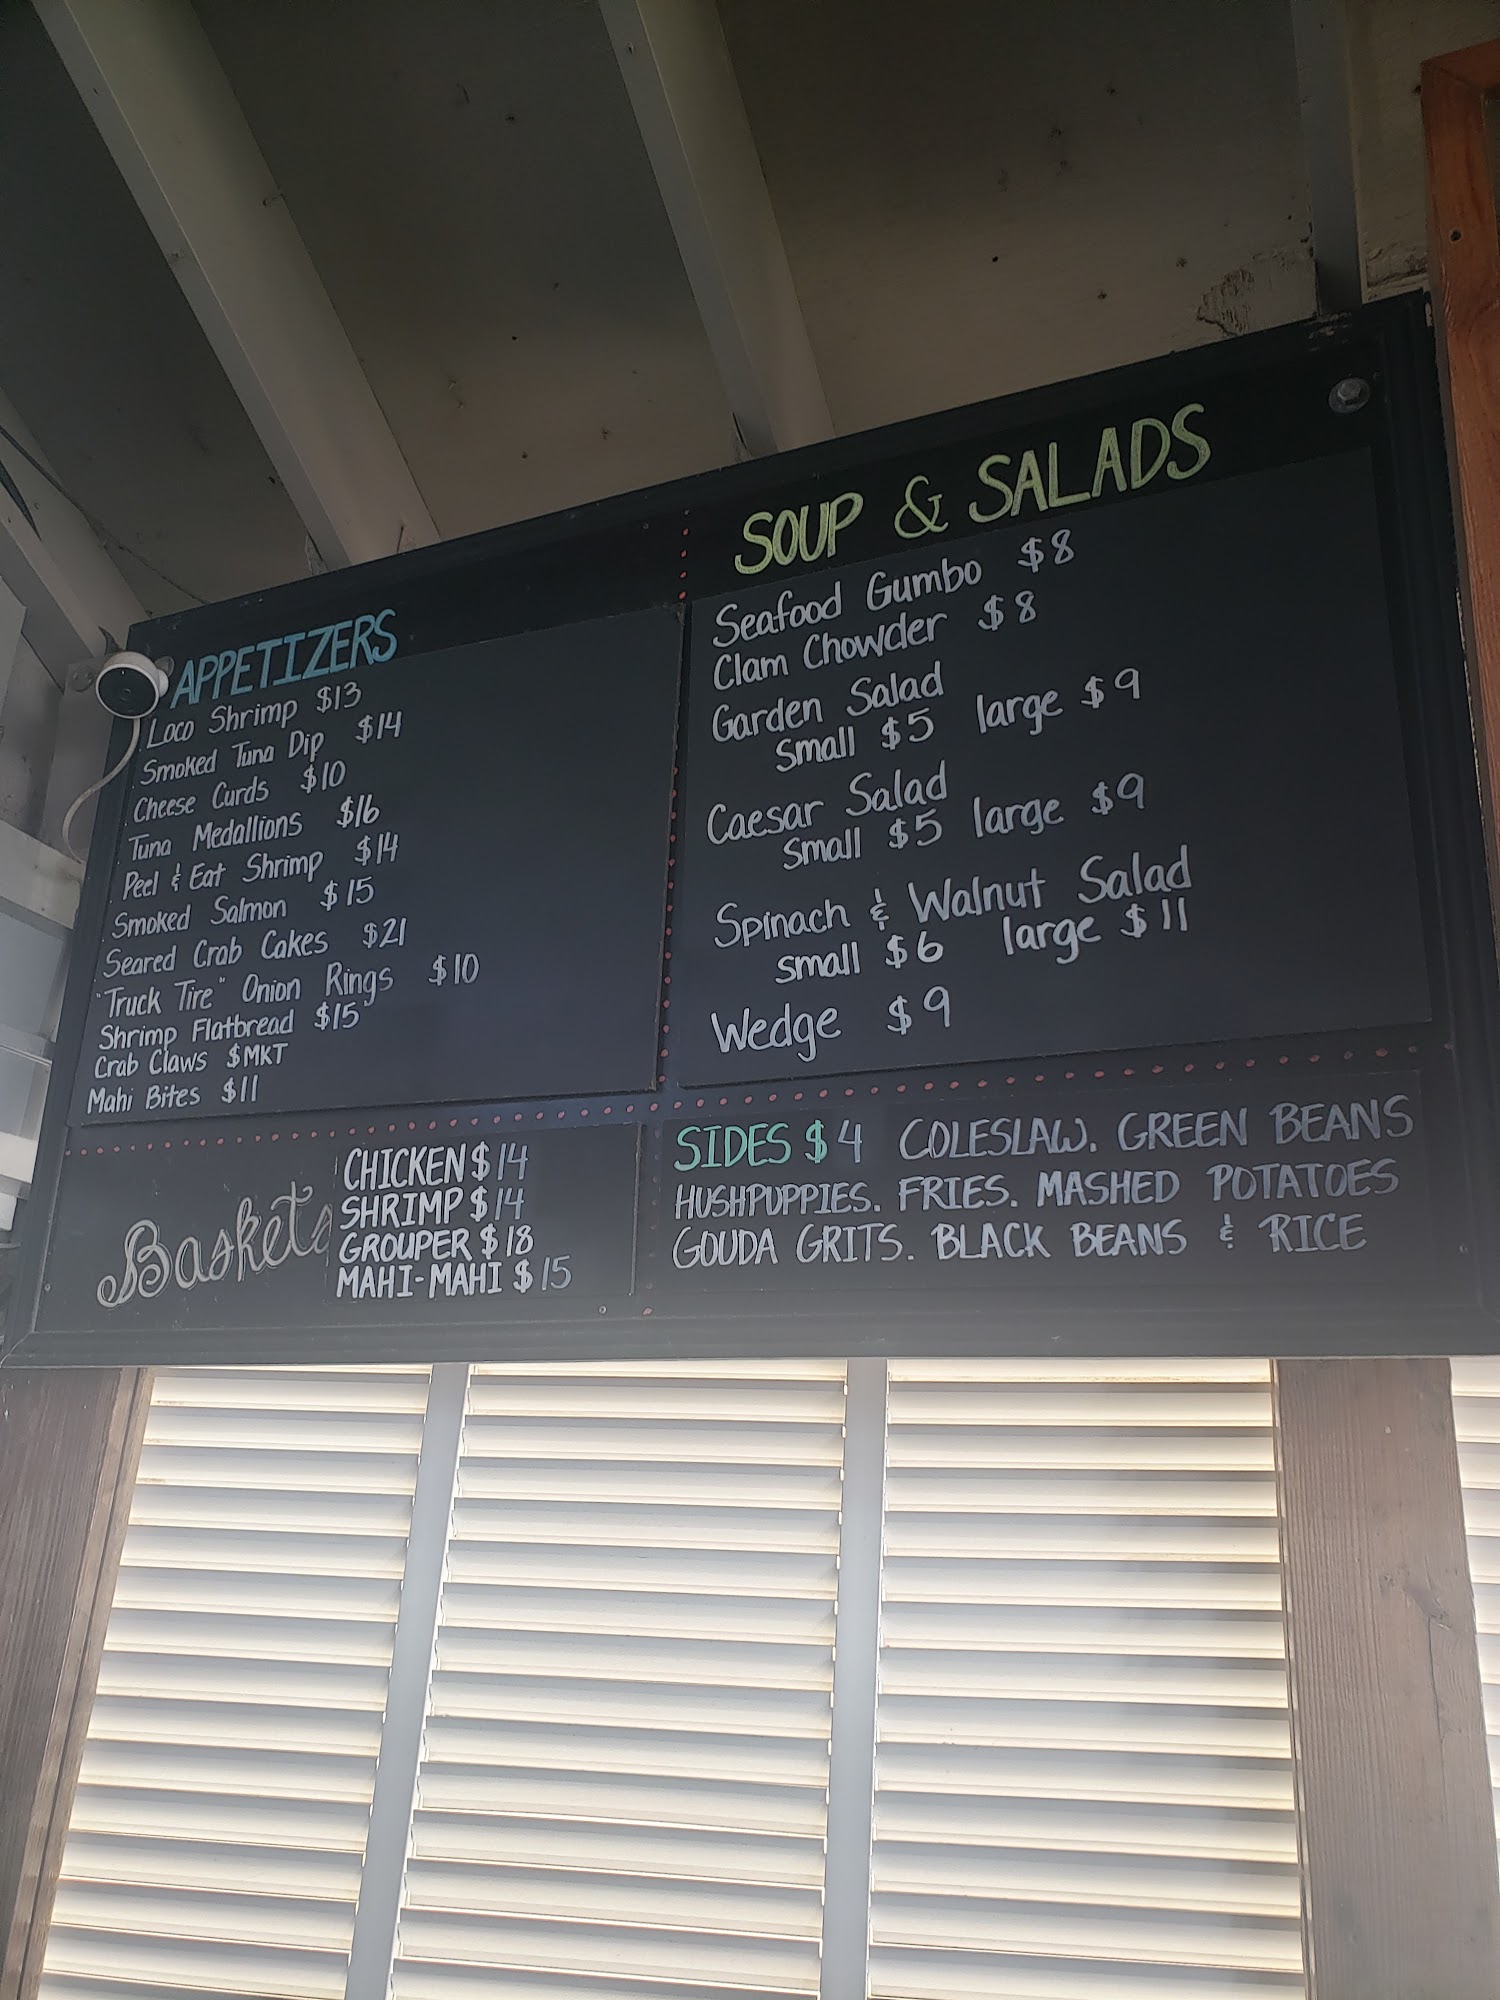 APPETIZERS
Loco Shrimp $13
Smoked Tuna Dip $14
Cheese Curds $10
Tuna Medallions $16
Peel & Eat Shrimp $14
Smoked Salmon $15
Seared Crab Cakes $21
"Truck Tire" Onion Rings $10
Shrimp Flatbread $15
Crab Claws $MKT
Mahi Bites $11
SOUP & SALADS
Seafood Gumbo $8
Clam Chowder $8
Garden Salad
small $5 large $9
Caesar Salad
small $5 large $9
Spinach & Walnut Salad
small $6 large $11
Wedge $9
Baskets
CHICKEN $14
SHRIMP $14
GROUPER $18
MAHI-MAHI $15
SIDES $4 COLESLAW. GREEN BEANS
HUSHPUPPIES. FRIES. MASHED POTATOES
GOUDA GRITS. BLACK BEANS & RICE